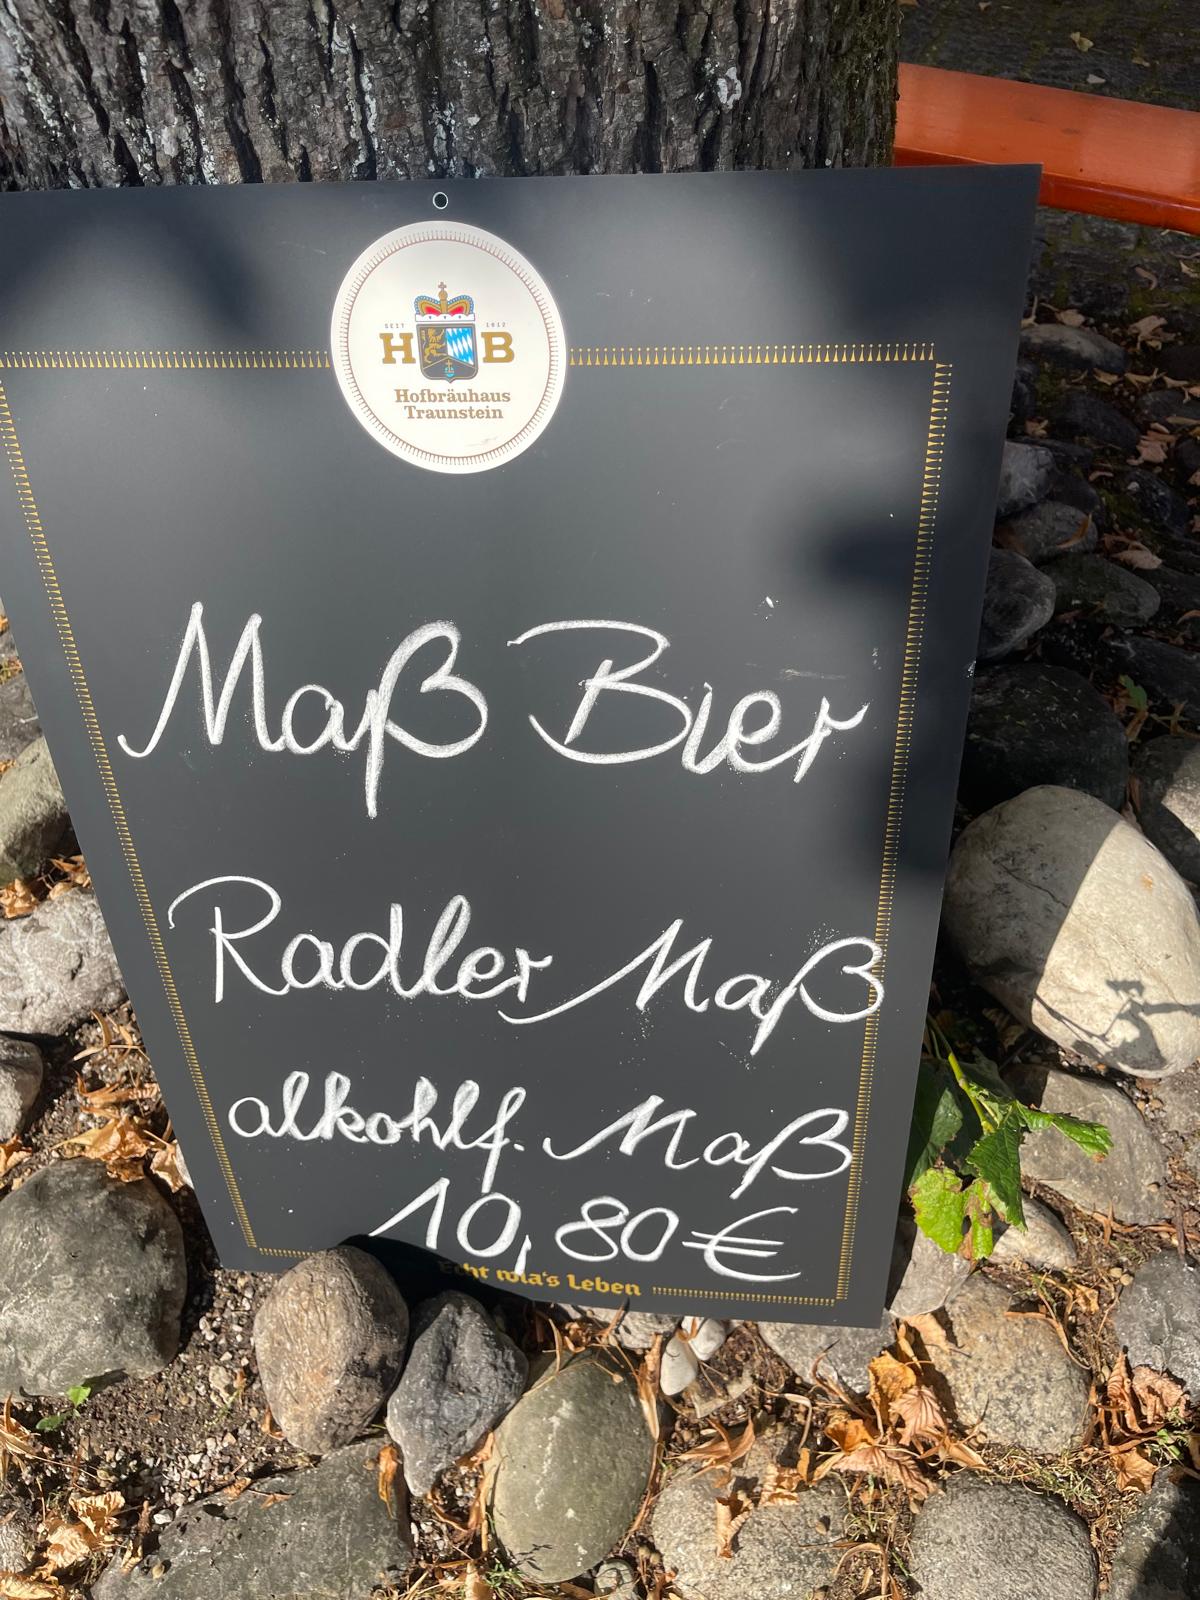 SEIT 1612
H B
Hofbräuhaus
Traunstein
Maß Bier
Radler Maß
alkohlf. Maß
10,80€
Echt wia's Leben